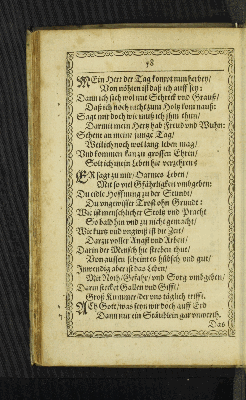 78
MEin Hertz der Tag kompt nun herbey/
Von nöhten ist daß ich auff sey:
Dann ich sich wol mit Schreck und Grauß/
Daß ich noch nicht zum Holtz
Sagt mir doch wie muß ich ihm thun/
Darmit mein Hertz hab Freud und Ruhm:
Scheint an meine junge Tag/
Weil ich noch wol lang leben mag/
Und kommen kan zu grossen Ehren/
Solt ich mein Leben
ER sagt zu mir/ Darmes Leben/
Mit so viel Gfährligkeit umbgeben:
Du eitle Hoffnung zu der Stundt/
Du ungewisser Trost ohn Grundt:
Wie ist menschlicher Stoltz und Pracht
So bald hin und zu nicht gemacht/
Wie kurtz und ungwiß ist die Zeit/
Darzu voller Angst und Arbeit/
Darin der Mensch hie streben thut/
Von aussen scheint es hübsch und gut/
Inwendig aber ist das Leben/
Mit Noth/ Gefahr/ und Sorg umbgeben/
Darin stecket Gallen und Gifft/
Groß Kummer/ der uns täglich trifft.
ACh Gott/ was seyn wir doch auff Erd
Dann nur ein Stäublein gar unwerth.
Das